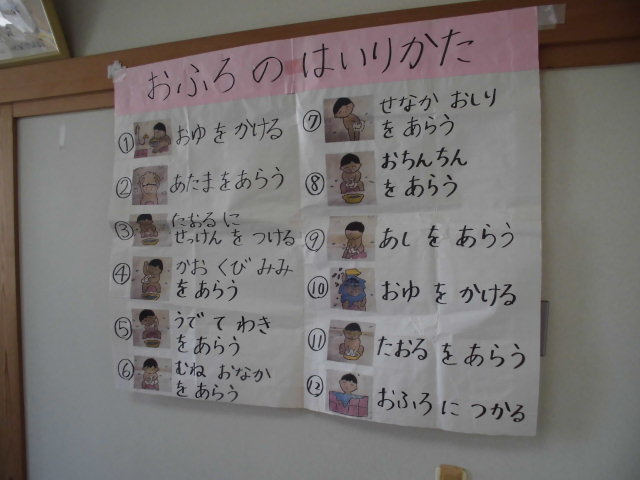 おふろのはいりかた
① おゆをかける
② あたまをあらう
③ たおるに
せっけんをつける
④ かお くび みみ
をあらう
⑤ うで て わき
をあらう
⑥ むね おなか
をあらう
⑦ せなか おしり
をあらう
⑧ おちんちん
をあらう
⑨ あしをあらう
⑩ おゆをかける
⑪ たおるをあらう
⑫ おふろにつかる